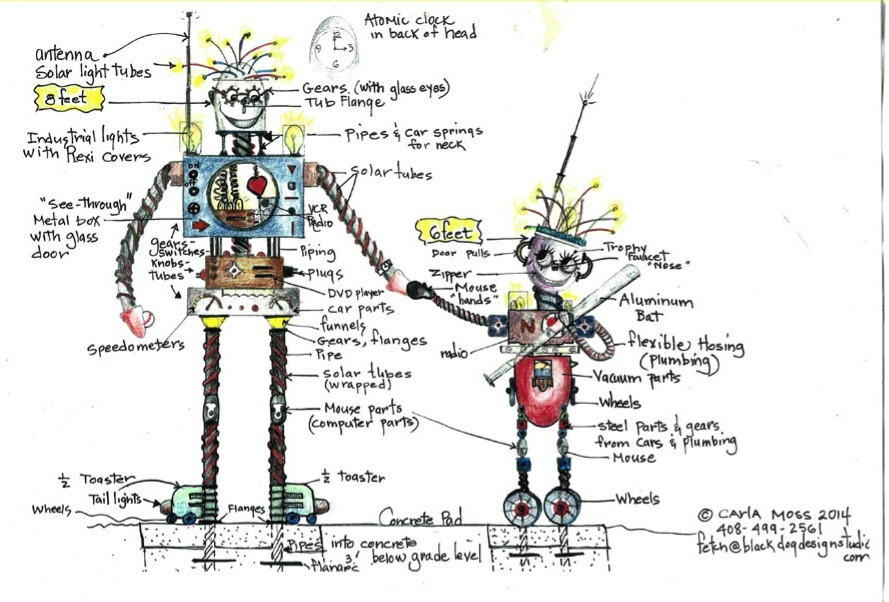 Atomic clock
in back of head
12
9
3
antenna
Solar light tubes
8 feet
Gears (with glass eyes)
Tub Flange
Industrial lights
with Plexi covers
Pipes & car springs
for neck
Solar tubes
"See-through"
Metal box
with glass
door
VCR
Radio
gears-
switches-
knobs-
tubes-
Piping
Plugs
DVD player
car parts
funnels
Gears, flanges
Pipe
Speedometers
Solar tubes
(wrapped)
Mouse parts
(computer parts)
1/2 Toaster
Tail lights
Wheels
Flanges
1/2 toaster
6 feet
Door pulls
Zipper
Mouse
"hands"
Trophy
Faucet
"Nose"
Aluminum
Bat
N
radio
flexible Hosing
(Plumbing)
Vacuum parts
Wheels
steel Parts & gears
from cars & plumbing
Mouse
Wheels
Concrete Pad
Pipes into concrete
3' below grade level
© CARLA MOSS 2014
408-499-2561
fetch@blackdogdesignstudio
com